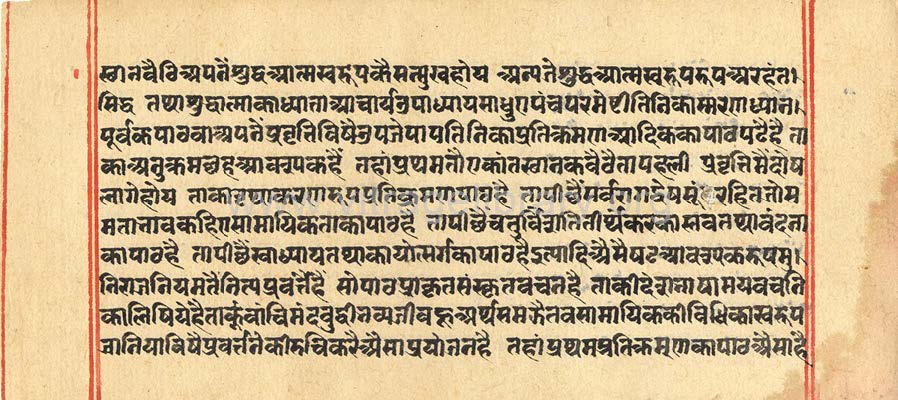 स्थानवैठि अपनैं शुद्धआत्मस्वरूपकै सन्मुख होय अन्यते शुद्धआत्मस्वरूपरूप अरहंत।
सिद्ध तथा शुद्धात्माका ध्याता आचार्य उपाध्याय साधु ए पंचपरमेष्ठी तिनिका स्मरण ध्यान।
पूर्वक पाठ वा अपने प्रवृत्तिविषै उपजे पाप तिनिका प्रतिक्रमण आदिकका पाठ पढै है ता
का अनुक्रम छह आवश्यक है तहां प्रथम तौ एकांतस्थानक वैठै ता पहली प्रवृत्तिमें दोष
लागे होय ताका यथाकरणरूप प्रतिक्रमणपाठ है ता पीछैं सर्व रागद्वेषसूं रहित होय
समताभाव कहि ए सामायिक ताका पाठ है ता पीछै चतुर्विंशतितीर्थंकरका स्तवन तथा वंदना
का पाठ है ता पीछैं स्वाध्याय तथा कायोत्सर्गका पाठ है इत्यादि ऐसै षट् आवश्यकरूप मु।
निराज नियमतैं नित्य प्रवर्त्ते हैं सो पाठ प्राकृत संस्कृत वचन है ताकी देशभाषामय वचनि
का लिखिये है ताकूं वांचि मंदबुद्धी भव्यजीवहू अर्थ समझै तव सामायिककी विधिका स्वरूप
जानि याविषै प्रवर्त्तनेकी रुचि करै ऐसा प्रयोजन है तहां प्रथम प्रतिक्रमणका पाठ ऐसा है